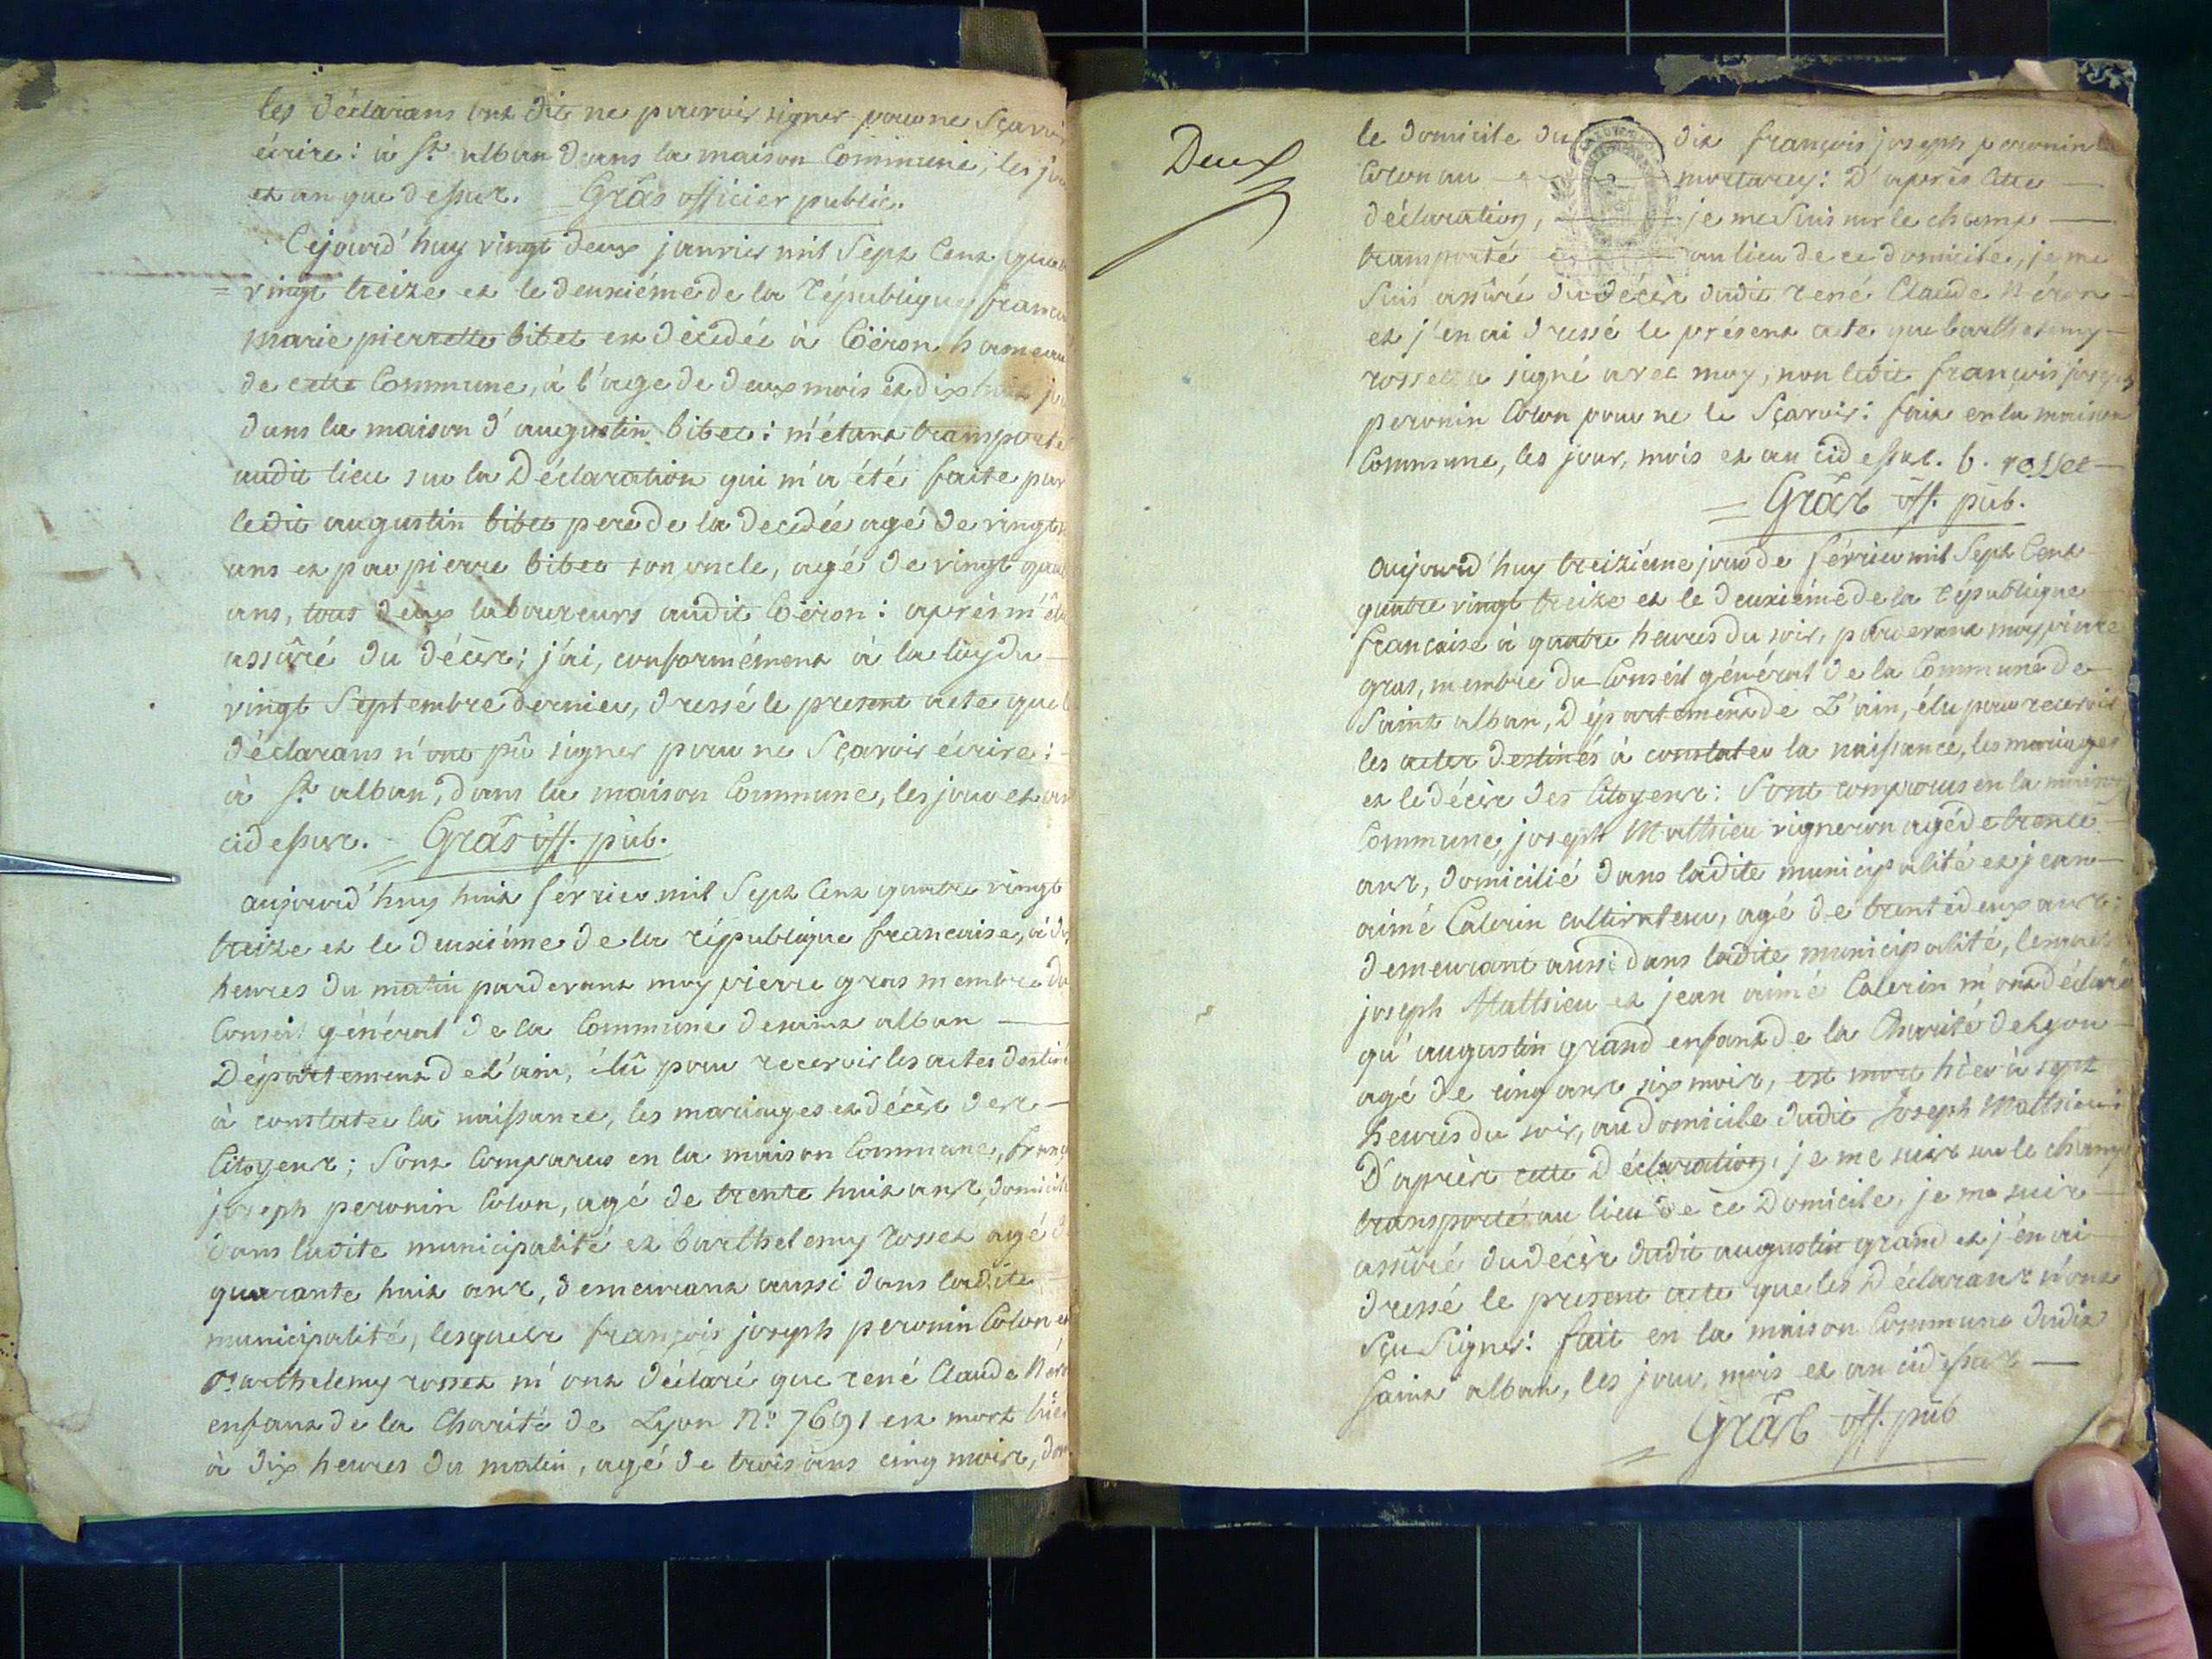 les déclarans ont dit ne pouvoir signer pour ne sçavoir
écrire: à St alban dans la maison Commune, les jour
et an que dessus. Gras officier public.
Cejourd'huy vingt deux janvier mil Sept Cent quatre
vingt treize et le deuxiéme de la république
marie pierrette bibet est décédée à Cöéron hameau
de cette Commune, à l'age de deux mois et dix huit
dans la maison d'augustin bibet: m'étant transporté
audit lieu sur la Déclaration qui m'a été faite par
ledit augustin bibet pere de la decedée agé de vingt
ans et par pierre bibet son oncle, agé de vingt
ans, tous deux laboureurs audit Cöéron: aprés m'être
assûré du décèr; j'ai, conformément à la loy du
vingt Septembre dernier, dressé le present acte que
déclarans n'ont pû signer pour ne Sçavoir écrire:
à St alban, dans la maison Commune, les jour et an
cidessur. Gras off. pub.
aujourd'huy huit février mil Sept Cent quatre vingt
treize et le deuxiéme de la république francaise, à
heures du matin pardevant moy pierre gras membre du
Conseil général de la Commune de saint alban
Département de L'ain, élû pour recevoir les actes destinés
à constater la naissance, les mariages et décèr der
Citoyenr; Sont Comparus en la maison Commune,
joseph peronin Colon, agé de trente huit anr, domicilié
dans ladite municipalité et barthelemy rosset agé
quarante huit anr, demeurant aussi dans ladite
municipalité, lesquelr françois joseph peronin Colon et
barthelemy rosset m'ont déclaré que rené Claude
enfant de la Charité de Lyon No 7691 est mort hier
à dix heures du matin, agé de trois ans cinq moir,
Deux
le domicile du dit françois joseph peronin
Colon au mortarey: D'après cette
déclaration, je me suis sur le champ
transporté au lieu de ce domicile, je me
suis assûré du décèr dudit rené Claude Néron
et j'en ai dressé le présent acte que barthelemy
rosset a signé avec moy, non ledit françois joseph
peronin Colon pour ne le Sçavoir: fait en la maison
Commune, les jour, mois et an cidessur. b. rosset
Gras off. pub.
aujourd'huy treiziéme jour de février mil Sept Cent
quatre vingt treize et le deuxiéme de la république
francaise à quatre heures du soir, pardevant moy pierre
gras, membre du Conseil général de la Commune de
Saint alban, Département de L'ain, élu pour recevoir
les acter destinés à constater la naissance, les mariages
et le décèr des Citoyenr: Sont comparus en la maison
Commune, joseph Matthieu vigneron agé de trente
anr, domicilié dans ladite municipalité et jean
aimé Calerin cultivateur, agé de trentedeux anr;
demeurant aussi dans ladite municipalité, lesquels
joseph Matthieu et jean aimé Calerin m'ont déclaré
qu'augustin grand enfant de la Charité de Lyon
agé de cinq anr six moir, est mort hier à sept
heures du soir, au domicile dudit Joseph Matthieu;
D'aprèr cette Déclaration, je me suir sur le champ
transporté au lieu de ce Domicile, je me suir
assûré du décèr dudit augustin grand et j'en ai
dressé le present acte que les Déclaranr n'ont
sçu Signer: fait en la maison Commune dudit
saint alban, les jour, mois et an cidessur
Gras off. pub